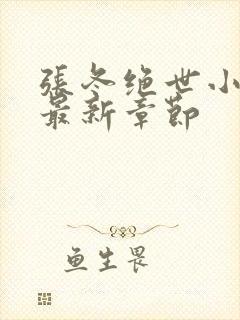 張冬绝世小
最新章節
鱼生畏